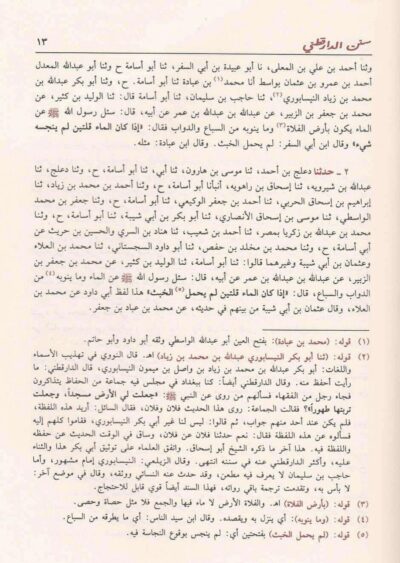 سنن الدارقطني ١٣
وثنا أحمد بن علي بن المعلى، نا أبو عبيدة بن أبي السفر، ثنا أبو أسامة ح، وثنا أبو عبدالله المعدل
أحمد بن عمرو بن عثمان بواسط أنا محمد(١) بن عبادة ثنا أبو أسامة. ح، وثنا أبو بكر عبدالله بن
محمد بن زياد النيسابوري(٢)، ثنا حاجب بن سليمان، ثنا أبو أسامة قال: ثنا الوليد بن كثير، عن
محمد بن جعفر بن الزبير، عن عبدالله بن عبدالله بن عمر عن أبيه، قال: سئل رسول الله ﷺ عن
الماء يكون بأرض الفلاة(٣) وما ينوبه من السباع والدواب فقال: «إذا كان الماء قلتين لم ينجسه
شيء» وقال ابن أبي السفر: لم يحمل الخبث. وقال ابن عبادة: مثله.
٢ ـ حدثنا دعلج بن أحمد، ثنا موسى بن هارون، ثنا أبي، ثنا أبو أسامة، ح، وثنا دعلج، ثنا
عبدالله بن شيرويه، ثنا إسحاق بن راهويه، أنبأنا أبو أسامة، ح، وثنا أحمد بن محمد بن زياد، ثنا
إبراهيم بن إسحاق الحربي، ثنا أحمد بن جعفر الوكيعي، ثنا أبو أسامة، ح، وثنا جعفر بن محمد
الواسطي، ثنا موسى بن إسحاق الأنصاري، ثنا أبو بكر بن أبي شيبة، ثنا أبو أسامة، ح، وثنا
محمد بن عبدالله بن زكريا بمصر، ثنا أحمد بن شعيب، ثنا هناد بن السري والحسين بن حريث عن
أبي أسامة، ح، وثنا محمد بن مخلد بن حفص، ثنا أبو داود السجستاني، ثنا محمد بن العلاء
وعثمان بن أبي شيبة وغيرهما قالوا: ثنا أبو أسامة، عن الوليد بن كثير، عن محمد بن جعفر بن
الزبير، عن عبدالله بن عبدالله بن عمر عن أبيه، قال: سئل رسول الله ﷺ عن الماء وما ينوبه(٤) من
الدواب والسباع، قال: «إذا كان الماء قلتين لم يحمل(٥) الخبث» هذا لفظ أبي داود عن محمد بن
العلاء، وقال عثمان بن أبي شيبة من بينهم في حديثه، عن محمد بن عباد بن جعفر.
(١) قوله: (محمد بن عبادة): بفتح العين أبو عبدالله الواسطي وثقه أبو داود وأبو حاتم.
(٢) قوله: (ثنا أبو بكر النيسابوري عبدالله بن محمد بن زياد) اهـ. قال النووي في تهذيب الأسماء
واللغات: أبو بكر عبدالله بن محمد بن زياد بن واصل بن ميمون النيسابوري، قال الدارقطني: ما
رأيت أحفظ منه. وقال الدارقطني أيضاً: كنا ببغداد في مجلس فيه جماعة من الحفاظ يتذاكرون
فجاء رجل من الفقهاء فسألهم من روى عن النبي ﷺ: «جعلت لي الأرض مسجداً، وجعلت
تربتها طهوراً»؟ فقالت الجماعة: روى هذا الحديث فلان وفلان، فقال السائل: أريد هذه اللفظة،
فلم يكن عند أحد منهم جواب، ثم قالوا: ليس لنا غير أبي بكر النيسابوري، فقاموا كلهم إليه
فسألوه عن هذه اللفظة فقال: نعم حدثنا فلان عن فلان، وساق في الوقت الحديث عن حفظه
واللفظة فيه. هذا آخر ما ذكره الشيخ أبو إسحاق. واتفق العلماء على توثيق أبي بكر هذا والثناء
عليه، وأكثر الدارقطني عنه في سننه انتهى. وقال الزيلعي: النيسابوري إمام مشهور، وأما
حاجب بن سليمان لا يعرف فيه مطعن، وقد حدث عنه النسائي ووثقه، وقال في موضع آخر:
لا بأس به، وتقدمت ترجمة باقي رواته، فهذا السند أيضاً قوي قابل للاحتجاج.
(٣) قوله: (بأرض الفلاة) اهـ. والفلاة الأرض لا ماء فيها والجمع فلا مثل حصاة وحصى.
(٤) قوله: (وما ينوبه): أي ينزل به ويقصده. وقال ابن سيد الناس: أي ما يطرقه من السباع.
(٥) قوله: (لم يحمل الخبث) بفتحتين أي: لم ينجس بوقوع النجاسة فيه.